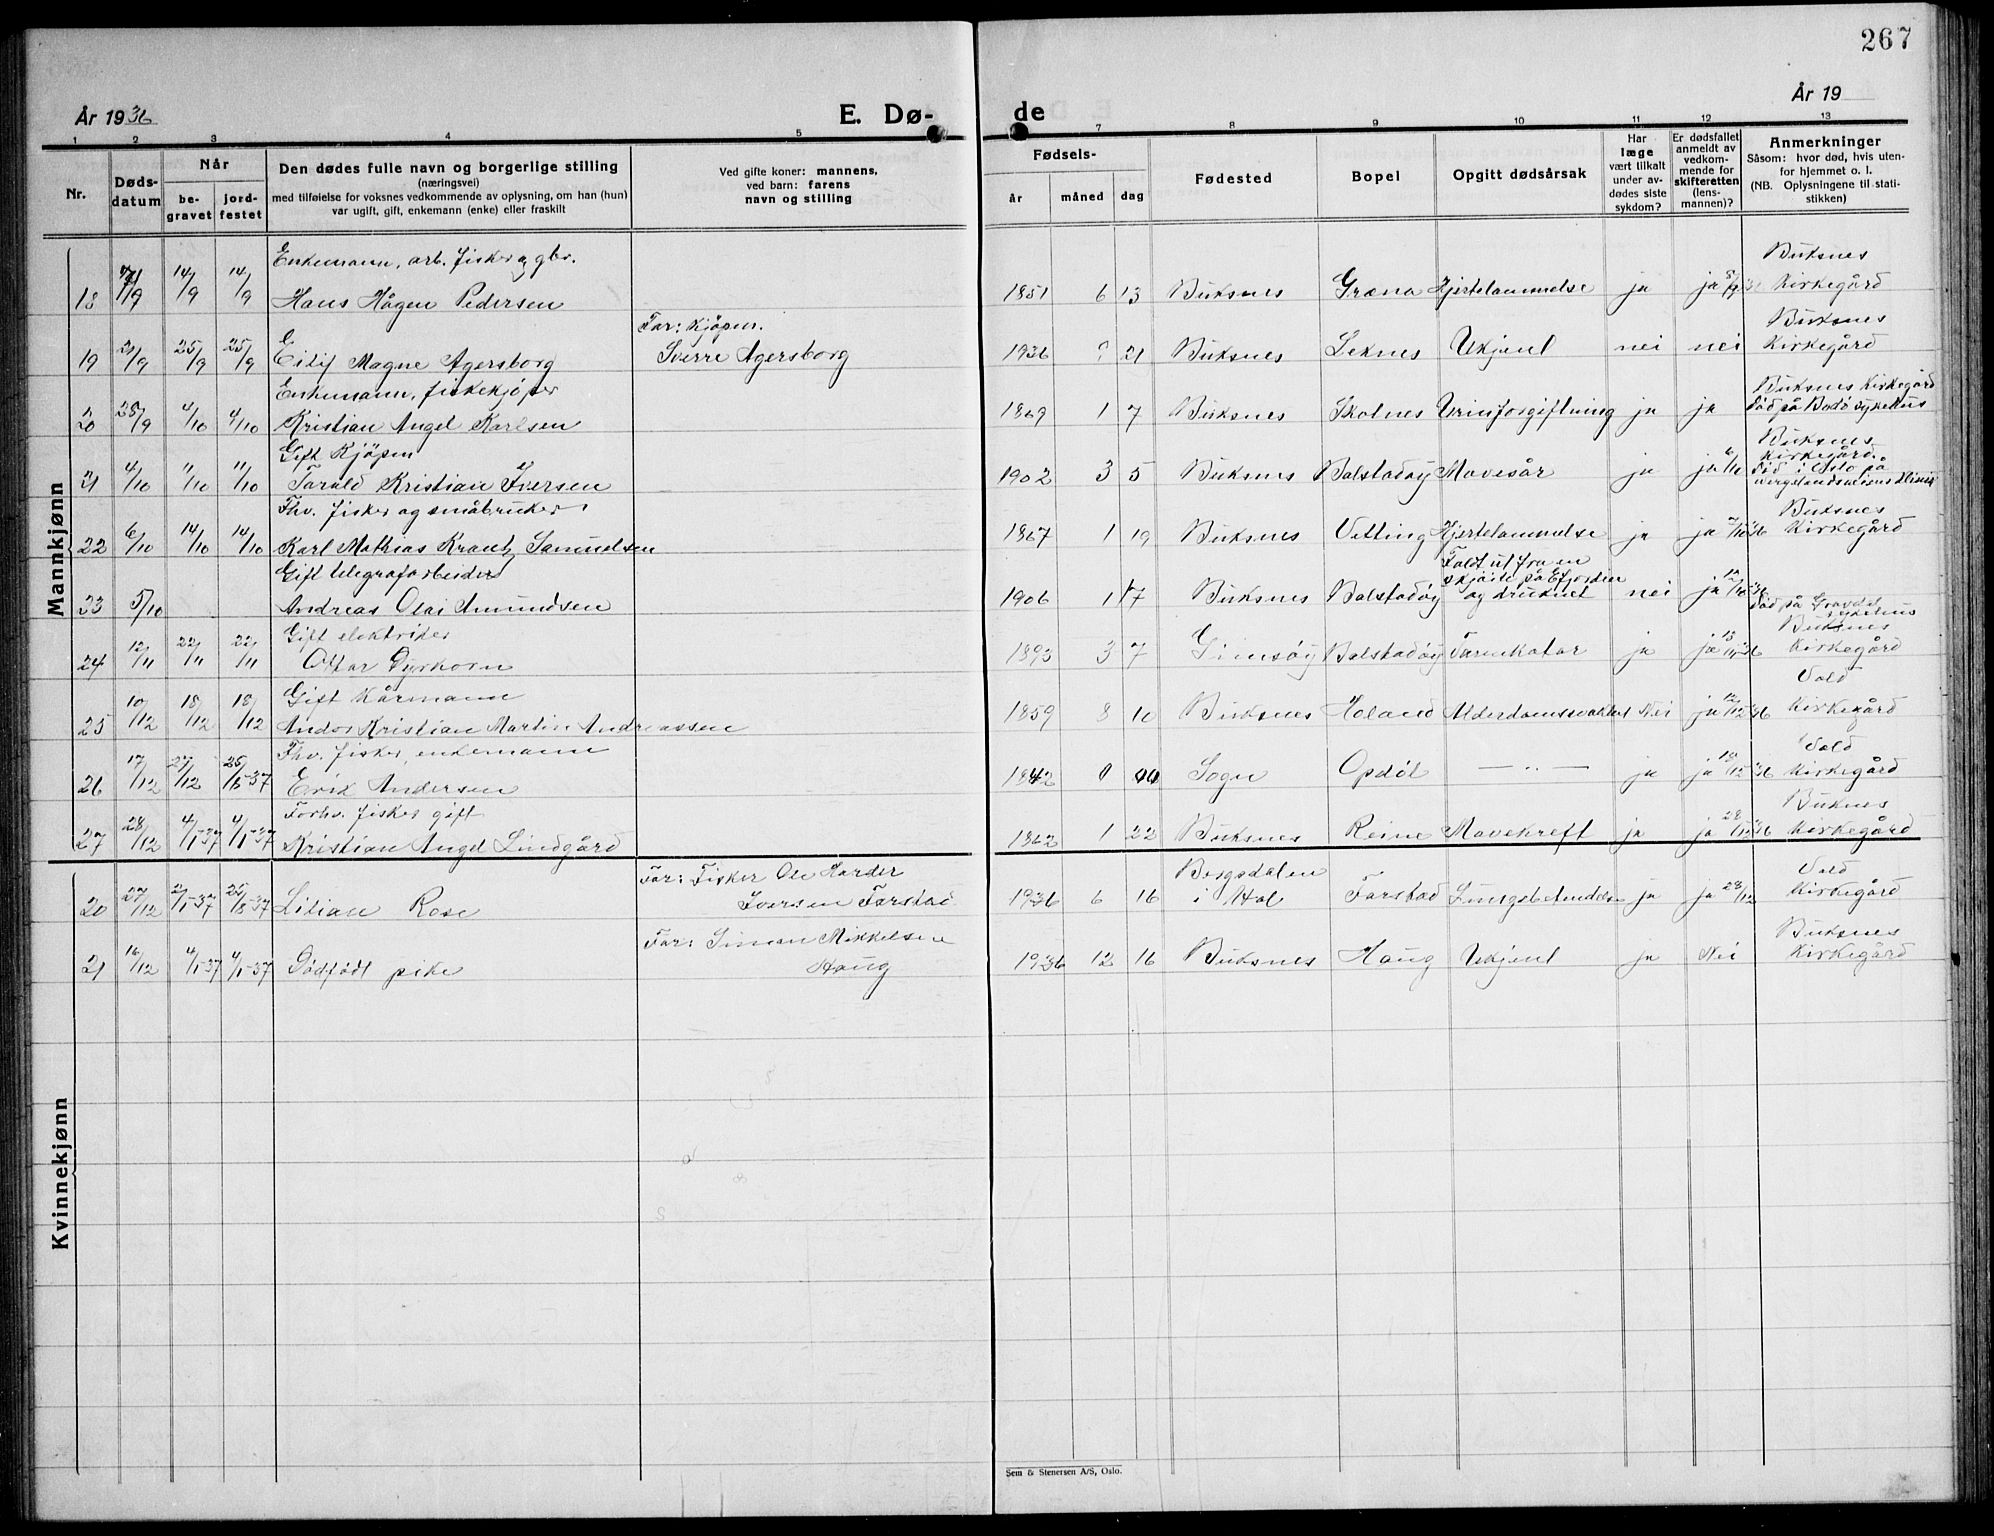 267
År 1936
E. Dø-
de
År 19
1 2 3 4 5 7 8 9 10 11 12 13
Nr.
Døds-
datum
Når
be-
gravet
jord-
festet
Den dødes fulle navn og borgerlige stilling
(næringsvei)
med tilføielse for voksnes vedkommende av oplysning, om han (hun)
var ugift, gift, enkemann (enke) eller fraskilt
Ved gifte koner: mannens,
ved barn: farens
navn og stilling
Fødsels-
år måned dag
Fødested
Bopel
Opgitt dødsårsak
Har
læge
vært tilkalt
under av-
dødes siste
sykdom?
Er dødsfallet
anmeldt av
vedkom-
mende for
skifteretten
(lens-
mannen)?
Anmerkninger
Såsom: hvor død, hvis uten-
for hjemmet o. l.
(NB. Oplysningene til stati-
stikken)
Mannkjønn
Enkemann, arb. fisker og gbr. Buksnes
18 14/9 14/9 Hans Hågen Pedersen 1851 6 13 Buksnes Græna Hjertelammelse ja ja Kirkegård
Far: Kjøpm. Buksnes
19 21/9 25/9 25/9 Eilif Magne Agersborg Sverre Agersborg 1936 9 21 Buksnes Leknes Ukjent nei nei Kirkegård
Enkemann, fiskekjøper Buksnes Kirkegård
20 28/9 4/10 4/10 Kristian Angel Karlsen 1869 1 7 Buksnes Skolnes Urinforgiftning ja ja Død på Bodø sykehus
Gift Kjøpm Buksnes
Kirkegård.
21 4/10 11/10 11/10 Torald Kristian Iversen 1902 3 5 Buksnes Balstadøy Mavesår ja ja 6/10 Død i Oslo på
Thv. fisker og småbruker Buksnes
22 6/10 14/10 14/10 Karl Mathias Krantz Samuelsen 1867 1 19 Buksnes Vetting Hjertelammelse ja ja Kirkegård
Gift telegrafarbeider Faldt ut fra en
skjøite på Efjorden
23 5/10 Andreas Olai Amundsen 1906 1 17 Buksnes Balstadøy og druknet nei ja
Død på Gravdal
sykehus
Gift elektriker Buksnes
24 12/11 22/11 22/11 Ottar Dyrkorn 1893 3 7 Gimsøy Balstadøy Tarmkatar ja ja Kirkegård
Gift Kårmann Vold
25 10/12 18/12 18/12 Andor Kristian Martin Andreassen 1859 8 10 Buksnes Holand Alderdomssvakhet Nei ja 12/12 36 Kirkegård
Fhv. fisker, enkemann Vold
26 17/12 27/12 25/8-37 Erik Andersen 1842 0 00 Sogn Opdøl — " — ja ja 18/12 36 Kirkegård
Forhv. fisker gift Buknes
27 28/12 4/1-37 4/1-37 Kristian Angel Lindgård 1862 1 22 Buksnes Reine Mavekreft ja ja 28/12 36 Kirkegård
Kvinnekjønn
Far: Fisker Ole Harder Borgsdalen Vold
20 27/12 2/1-37 25/8-37 Lilian Rose Iversen Farstad 1936 6 16 i Hol Farstad Lungebetendelse ja ja 28/12 Kirkegård
Far: Simon Mikkelsen Buksnes
21 16/12 4/1-37 4/1-37 Dødfødt pike Haug 1936 12 16 Buksnes Haug Ukjent ja Nei Kirkegård
Sem & Stenersen A/S, Oslo.